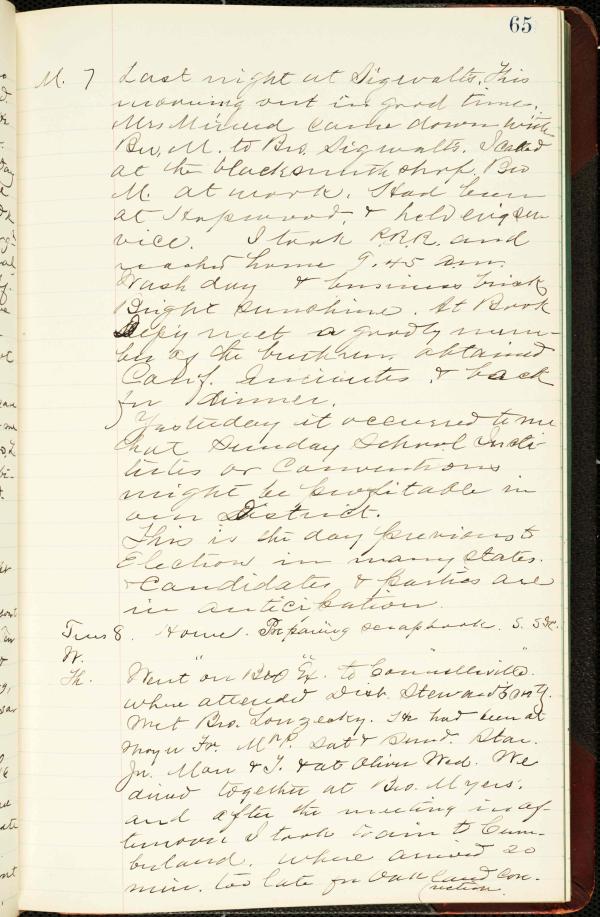 65
M. 7 Last night at Sigwalts. This
morning out in good time.
Mrs came down with
Bro. M. to Bro. Sigwalts. I called
at the blacksmith shop. Bro
M. at work. Had been
at Hopwood, & held evg ser-
vice. I took P.R.R. and
reached home 9.45 am.
Wash day & business brisk
Bright sunshine. At Book
Dep'y met a goodly num-
ber of the brethren, obtained
Conf. Minutes & back
for dinner.
Yesterday it occurred to me
that Sunday School Insti-
tutes or Conventions
might be profitable in
our District.
This is the day previous to
Election in many states.
& Candidates & parties are
in anticipation.
Tues 8. Home. Preparing scrapbook. S.
W. " "
Th. Went on B&O Ex. to Connellsville.
where attended Dist. Stewards m'tg.
Met Bro. He had been at
for Sat & Sund. Star.
Jn. Mon & T. & at Wed. We
dined together at Bro. Myers.
and after the meeting in af-
ternoon I took train to Cum-
berland, where arrived 20
min. too late for Oakland con-
nection.